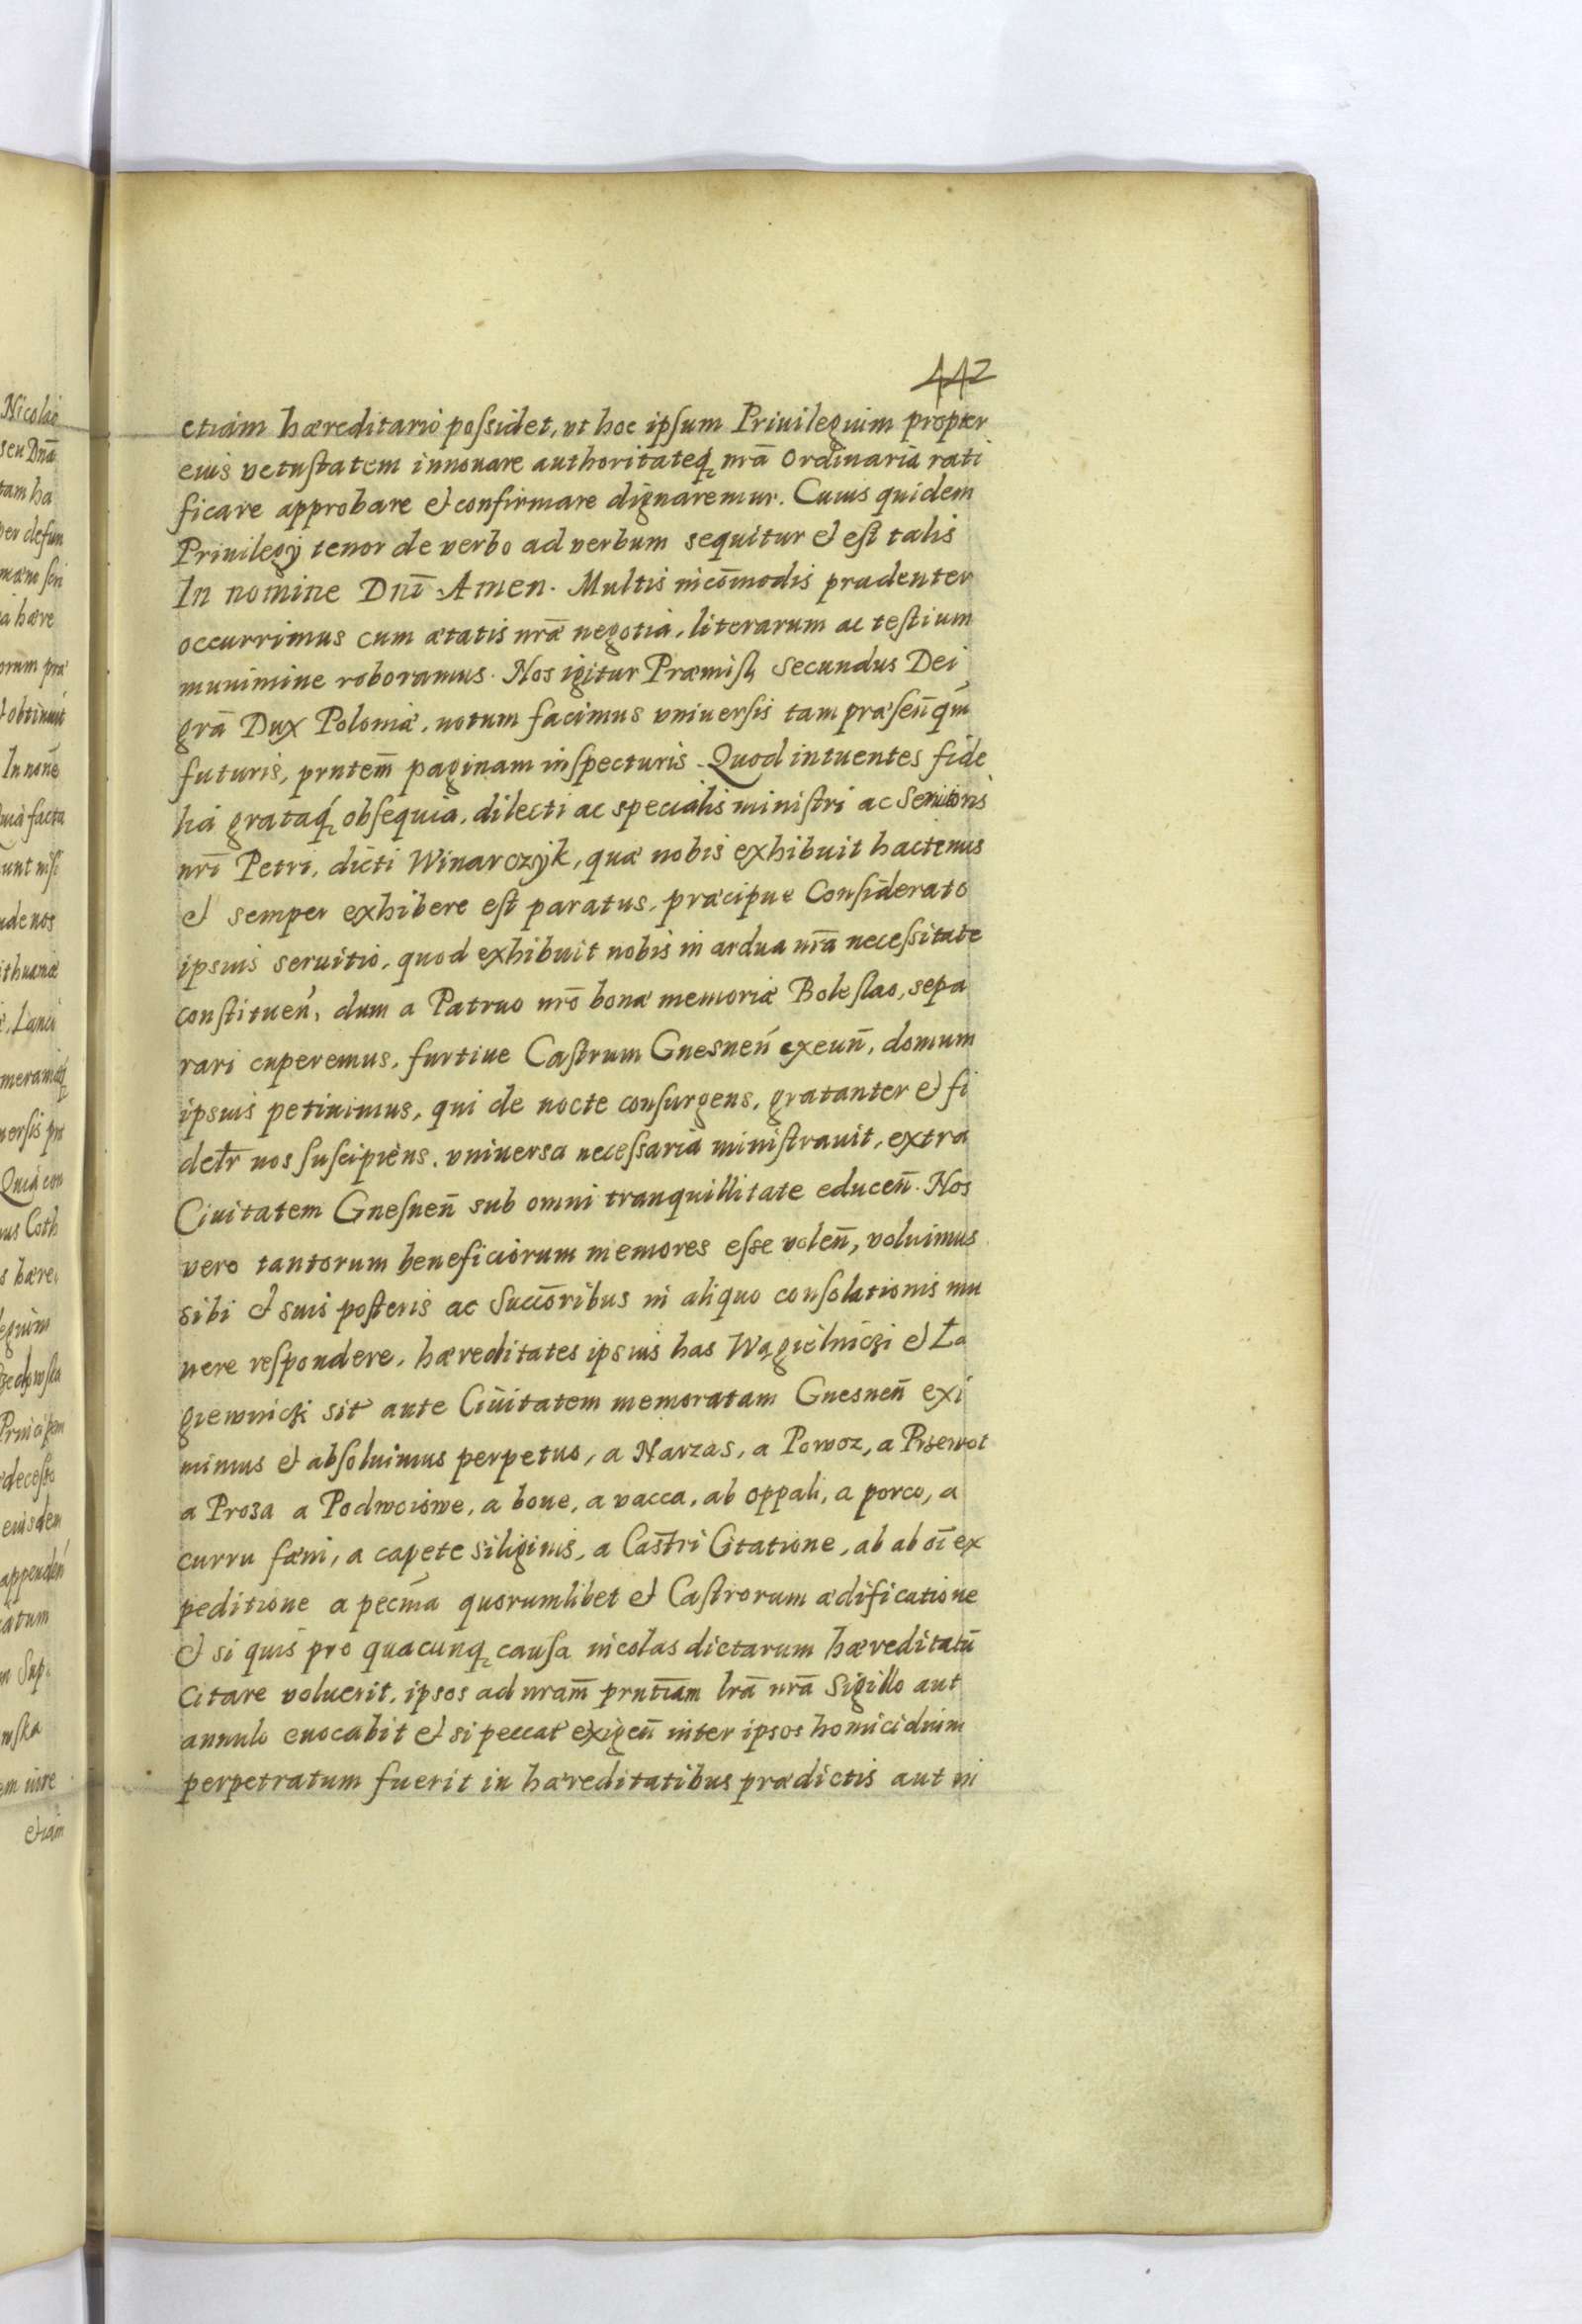 442
etiam hæreditario possidet, vt hoc ipsum Priuilegium propter
eius vetustatem innouare authoritateq́ nrā Ordinaria rati
ficare approbare et confirmare dignaremur. Cuius quidem
Priuilegÿ tenor de verbo ad verbum sequitur et est talis
In nomine Dnī Amen. Multis incōmodis prudenter
occurrimus cum ætatis nrǣ negotia, literarum ac testium
munimine roboramus. Nos igitur Præmisl Secundus Dei
grā Dux Poloniæ, notum facimus vniuersis tam præsen̄ qm̄
futuris, prntem̄ paginam inspecturis. Quod intuentes fide
lia grataq́ obsequia, dilecti ac specialis ministri ac Seruitoris
nrī Petri, dicti Winarczÿk, quæ nobis exhibuit hactenus
et semper exhibere est paratus, præcipue Considerato
ipsuis seruitio, quod exhibuit nobis in ardua nrā necessitate
constituen̄, dum a Patruo nrō bonæ memoriæ Boleslao, sepa
rari cuperemus, furtiue Castrum Gnesnen̄ exeun̄, domum
ipsuis petiuimus, qui de nocte consurgens, gratanter et fi
delr̄ nos suscipiens, vniuersa necessaria ministrauit, extra
Ciuitatem Gnesnen̄ sub omni tranquillitate educen̄. Nos
vero tantorum beneficiorum memores esse volen̄, voluimus
sibi et suis posteris ac Succōribus in aliquo consolationis mu
nere respondere, hæreditates ipsius has Wągielniczki et Ła
giewniczki sit ante Ciuitatem memoratam Gnesnen̄ exi
mimus et absoluimus perpetuo, a Narzas, a Powoz, a Przewot
a Proza a Podwoiowe, a boue, a vacca, ab oppali, a porco, a
curru fæni, a capete siliginis, a Castri Citatione, ab ab oī ex
peditione a pecnīa quorumlibet et Castrorum ædificatione
et si quis pro quacunq́ causa incolas dictarum hæreditatū
citare voluerit, ipsos ad nram̄ prntīam lrā nrā Sigillo aut
annulo euocabit et si peccat̄ exigen̄ inter ipsos homicidium
perpetratum fuerit in hæreditatibus prædictis aut in